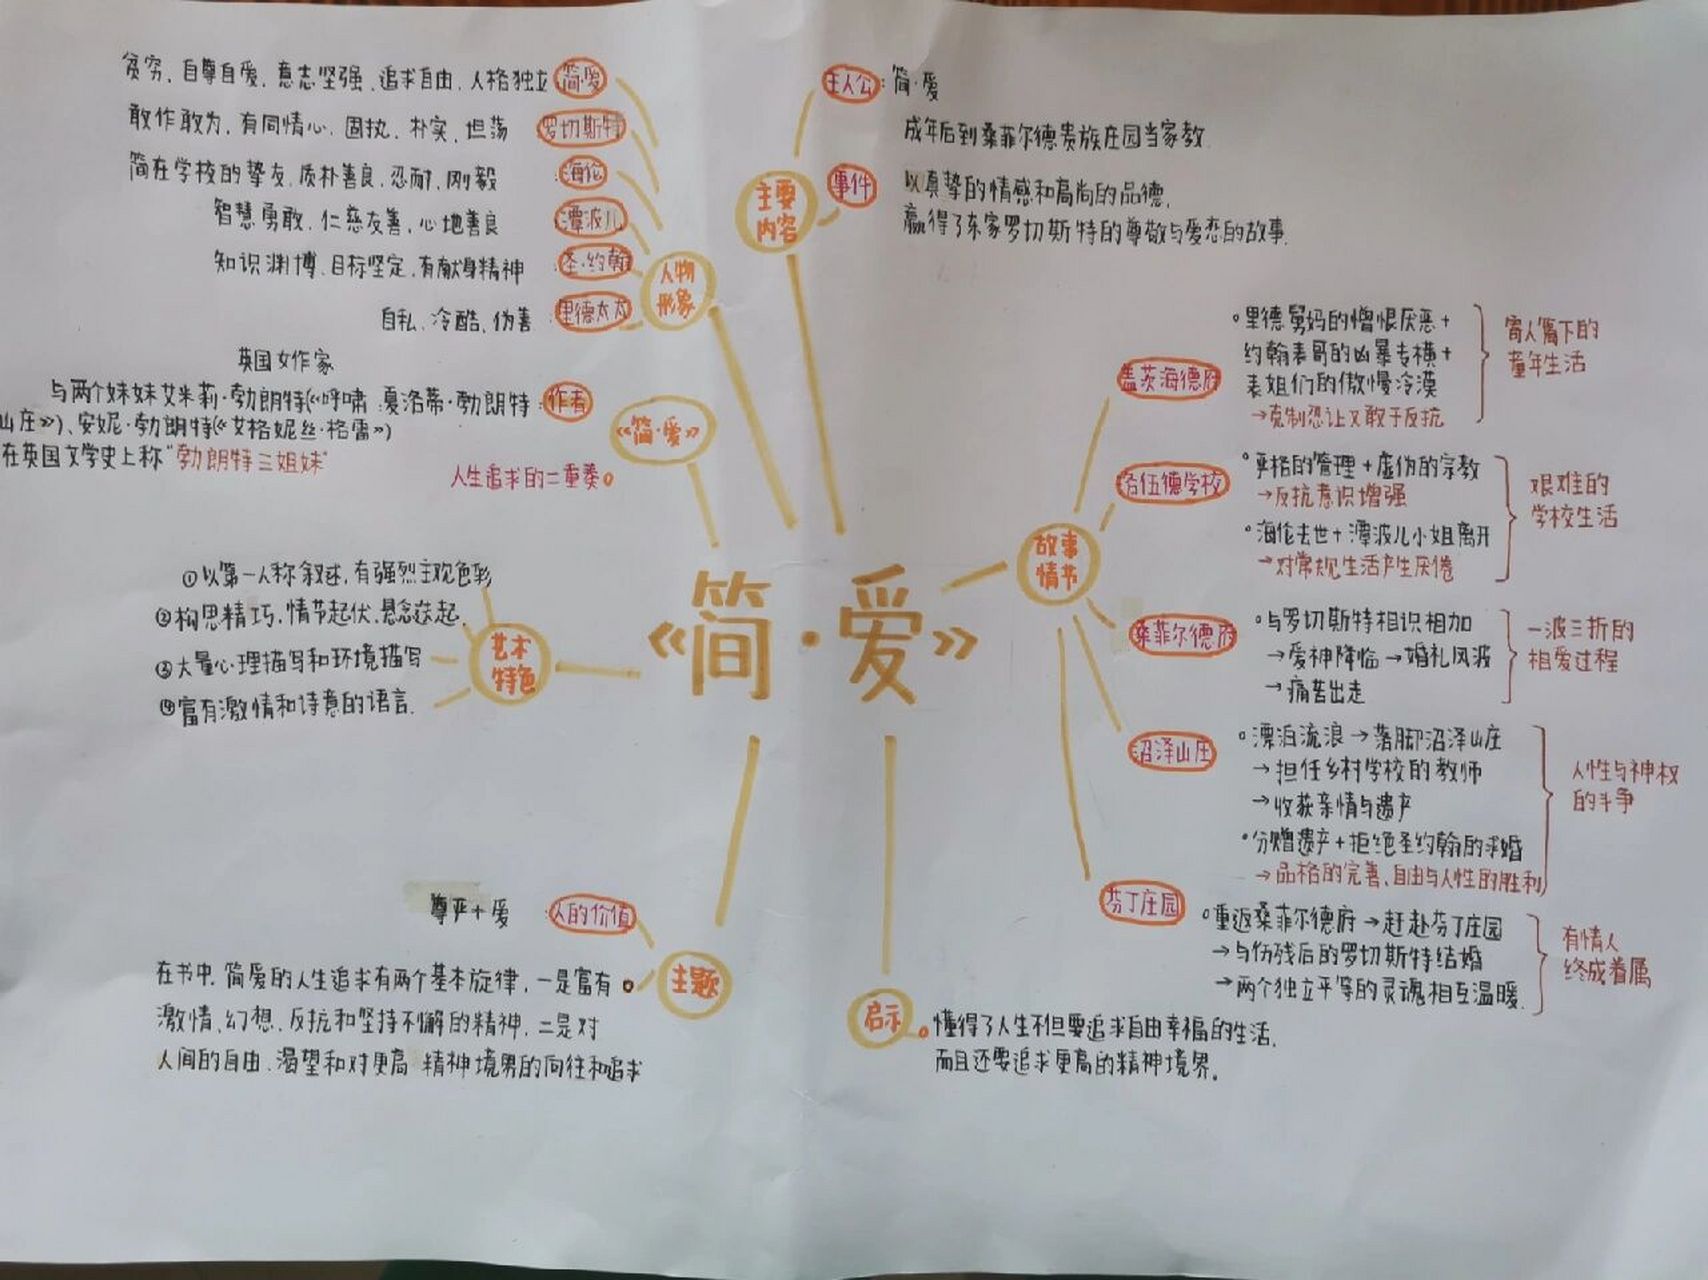 《简·爱》
主要
内容
主人公：简·爱
成年后到桑菲尔德贵族庄园当家教
事件
以真挚的情感和高尚的品德,
赢得了东家罗切斯特的尊敬与爱恋的故事.
人物
形象
贫穷、自尊自爱、意志坚强、追求自由、人格独立 简·爱
敢作敢为、有同情心、固执、朴实、坦荡 罗切斯特
简在学校的挚友、质朴善良、忍耐、刚毅 海伦
智慧勇敢、仁慈友善、心地善良 :潭波儿
知识渊博、目标坚定、有献身精神 圣·约翰
自私、冷酷、伪善 :里德太太
《简·爱》
英国女作家
与两个妹妹艾米莉·勃朗特(《呼啸 :夏洛蒂·勃朗特 :作者
山庄》)、安妮·勃朗特(《艾格妮丝·格雷》)
在英国文学史上称"勃朗特三姐妹"
人生追求的二重奏
艺术
特色
①以第一人称叙述,有强烈主观色彩
②构思精巧,情节起伏,悬念迭起.
③大量心理描写和环境描写
④富有激情和诗意的语言.
主题
尊严+爱 :人的价值
在书中,简爱的人生追求有两个基本旋律,一是富有
激情、幻想、反抗和坚持不懈的精神,二是对
人间的自由、渴望和对更高 精神境界的向往和追求
启示
懂得了人生不但要追求自由幸福的生活,
而且还要追求更高的精神境界。
故事
情节
盖茨海德府
里德舅妈的憎恨厌恶+
约翰表哥的凶暴专横+
表姐们的傲慢冷漠
→克制忍让又敢于反抗
寄人篱下的
童年生活
洛伍德学校
严格的管理+虚伪的宗教
→反抗意识增强
海伦去世+潭波儿小姐离开
→对常规生活产生厌倦
艰难的
学校生活
桑菲尔德府
与罗切斯特相识相加
→爱神降临→婚礼风波
→痛苦出走
一波三折的
相爱过程
沼泽山庄
漂泊流浪→落脚沼泽山庄
→担任乡村学校的教师
→收获亲情与遗产
分赠遗产+拒绝圣约翰的求婚
→品格的完善、自由与人性的胜利
人性与神权
的斗争
芬丁庄园
重返桑菲尔德府→赶赴芬丁庄园
→与伤残后的罗切斯特结婚
→两个独立平等的灵魂相互温暖.
有情人
终成眷属